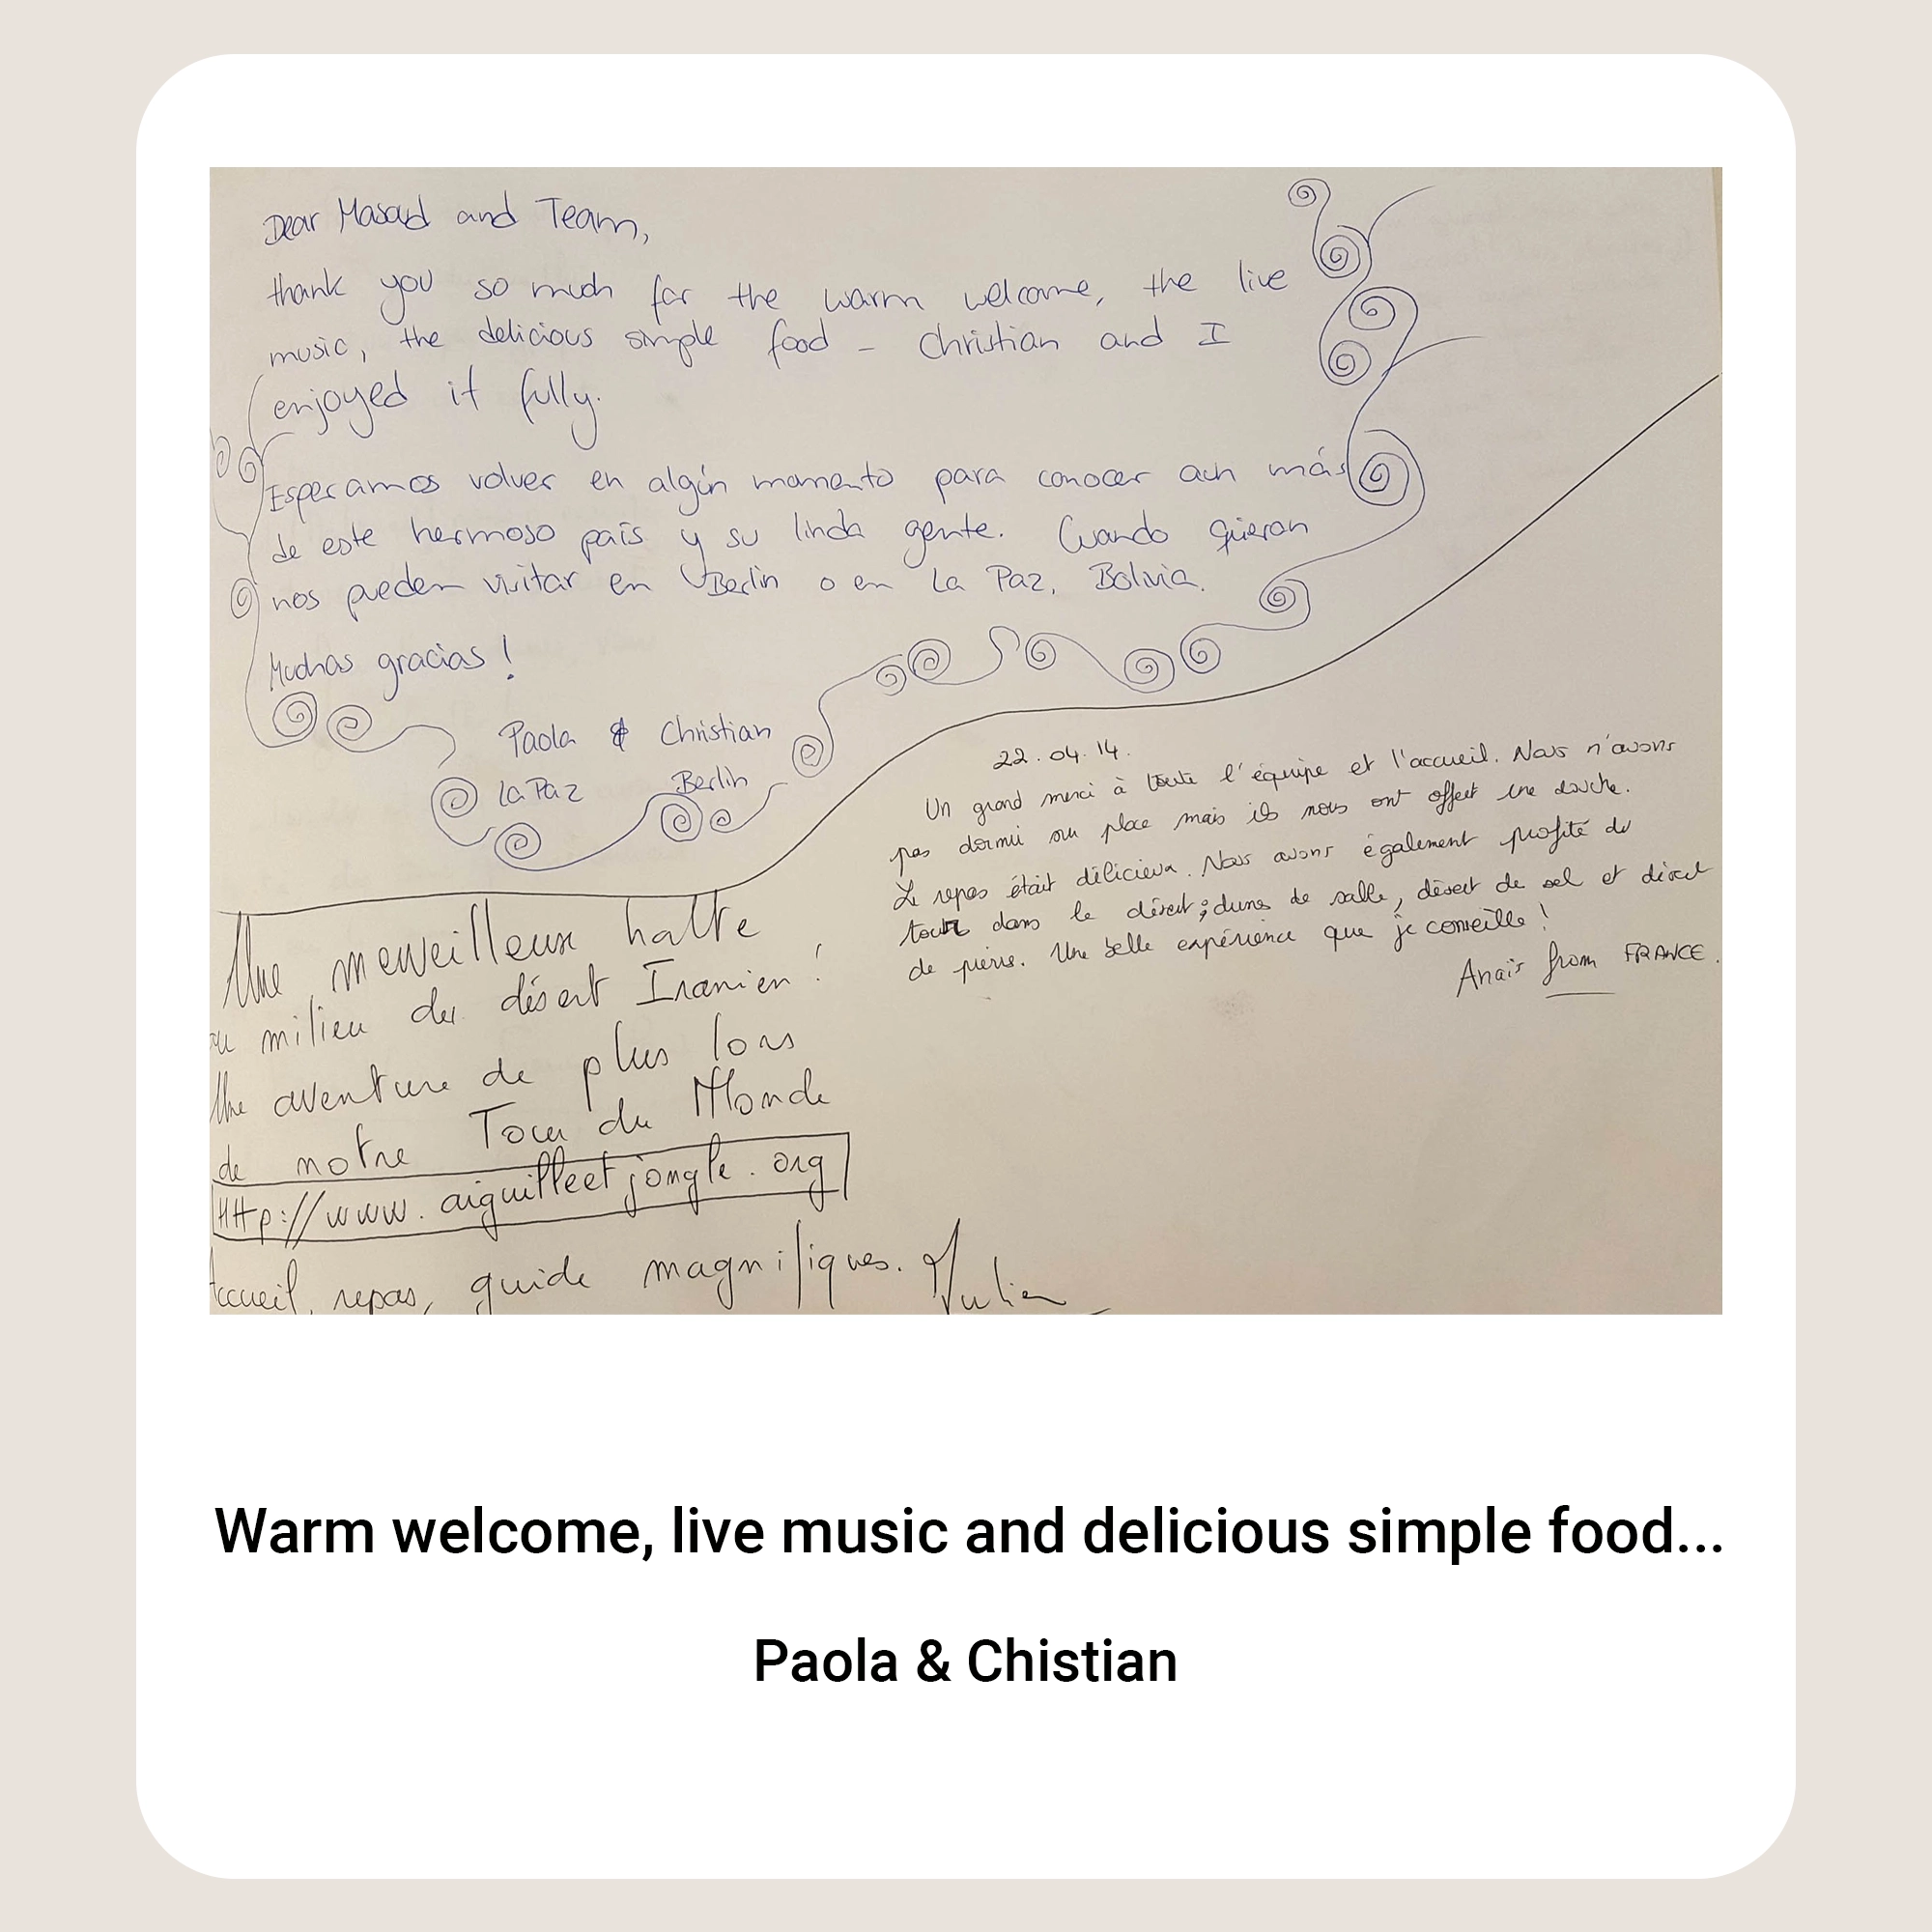 Dear Masoud and Team,
thank you so much for the warm welcome, the live
music, the delicious simple food – Christian and I
enjoyed it fully.
Esperamos volver en algún momento para conocer aun más
de este hermoso país y su linda gente. Cuando quieran
nos pueden visitar en Berlin o en La Paz, Bolivia.
Muchas gracias!
Paola & Christian
La Paz Berlin
22.04.14.
Un grand merci à toute l'équipe et l'accueil. Nous n'avons
pas dormi sur place mais ils nous ont offert une douche.
Le repas était délicieux. Nous avons également profité du
tour dans le désert; dunes de salle, désert de sel et désert
de pierre. Une belle expérience que je conseille!
Anaïs from FRANCE.
Une merveilleuse halte
au milieu du désert Iranien!
Une aventure de plus lors
de notre Tour du Monde
HTTp://www.aiguilleetjongle.org
Accueil, repas, guide magnifiques. Julien
Warm welcome, live music and delicious simple food...
Paola & Chistian